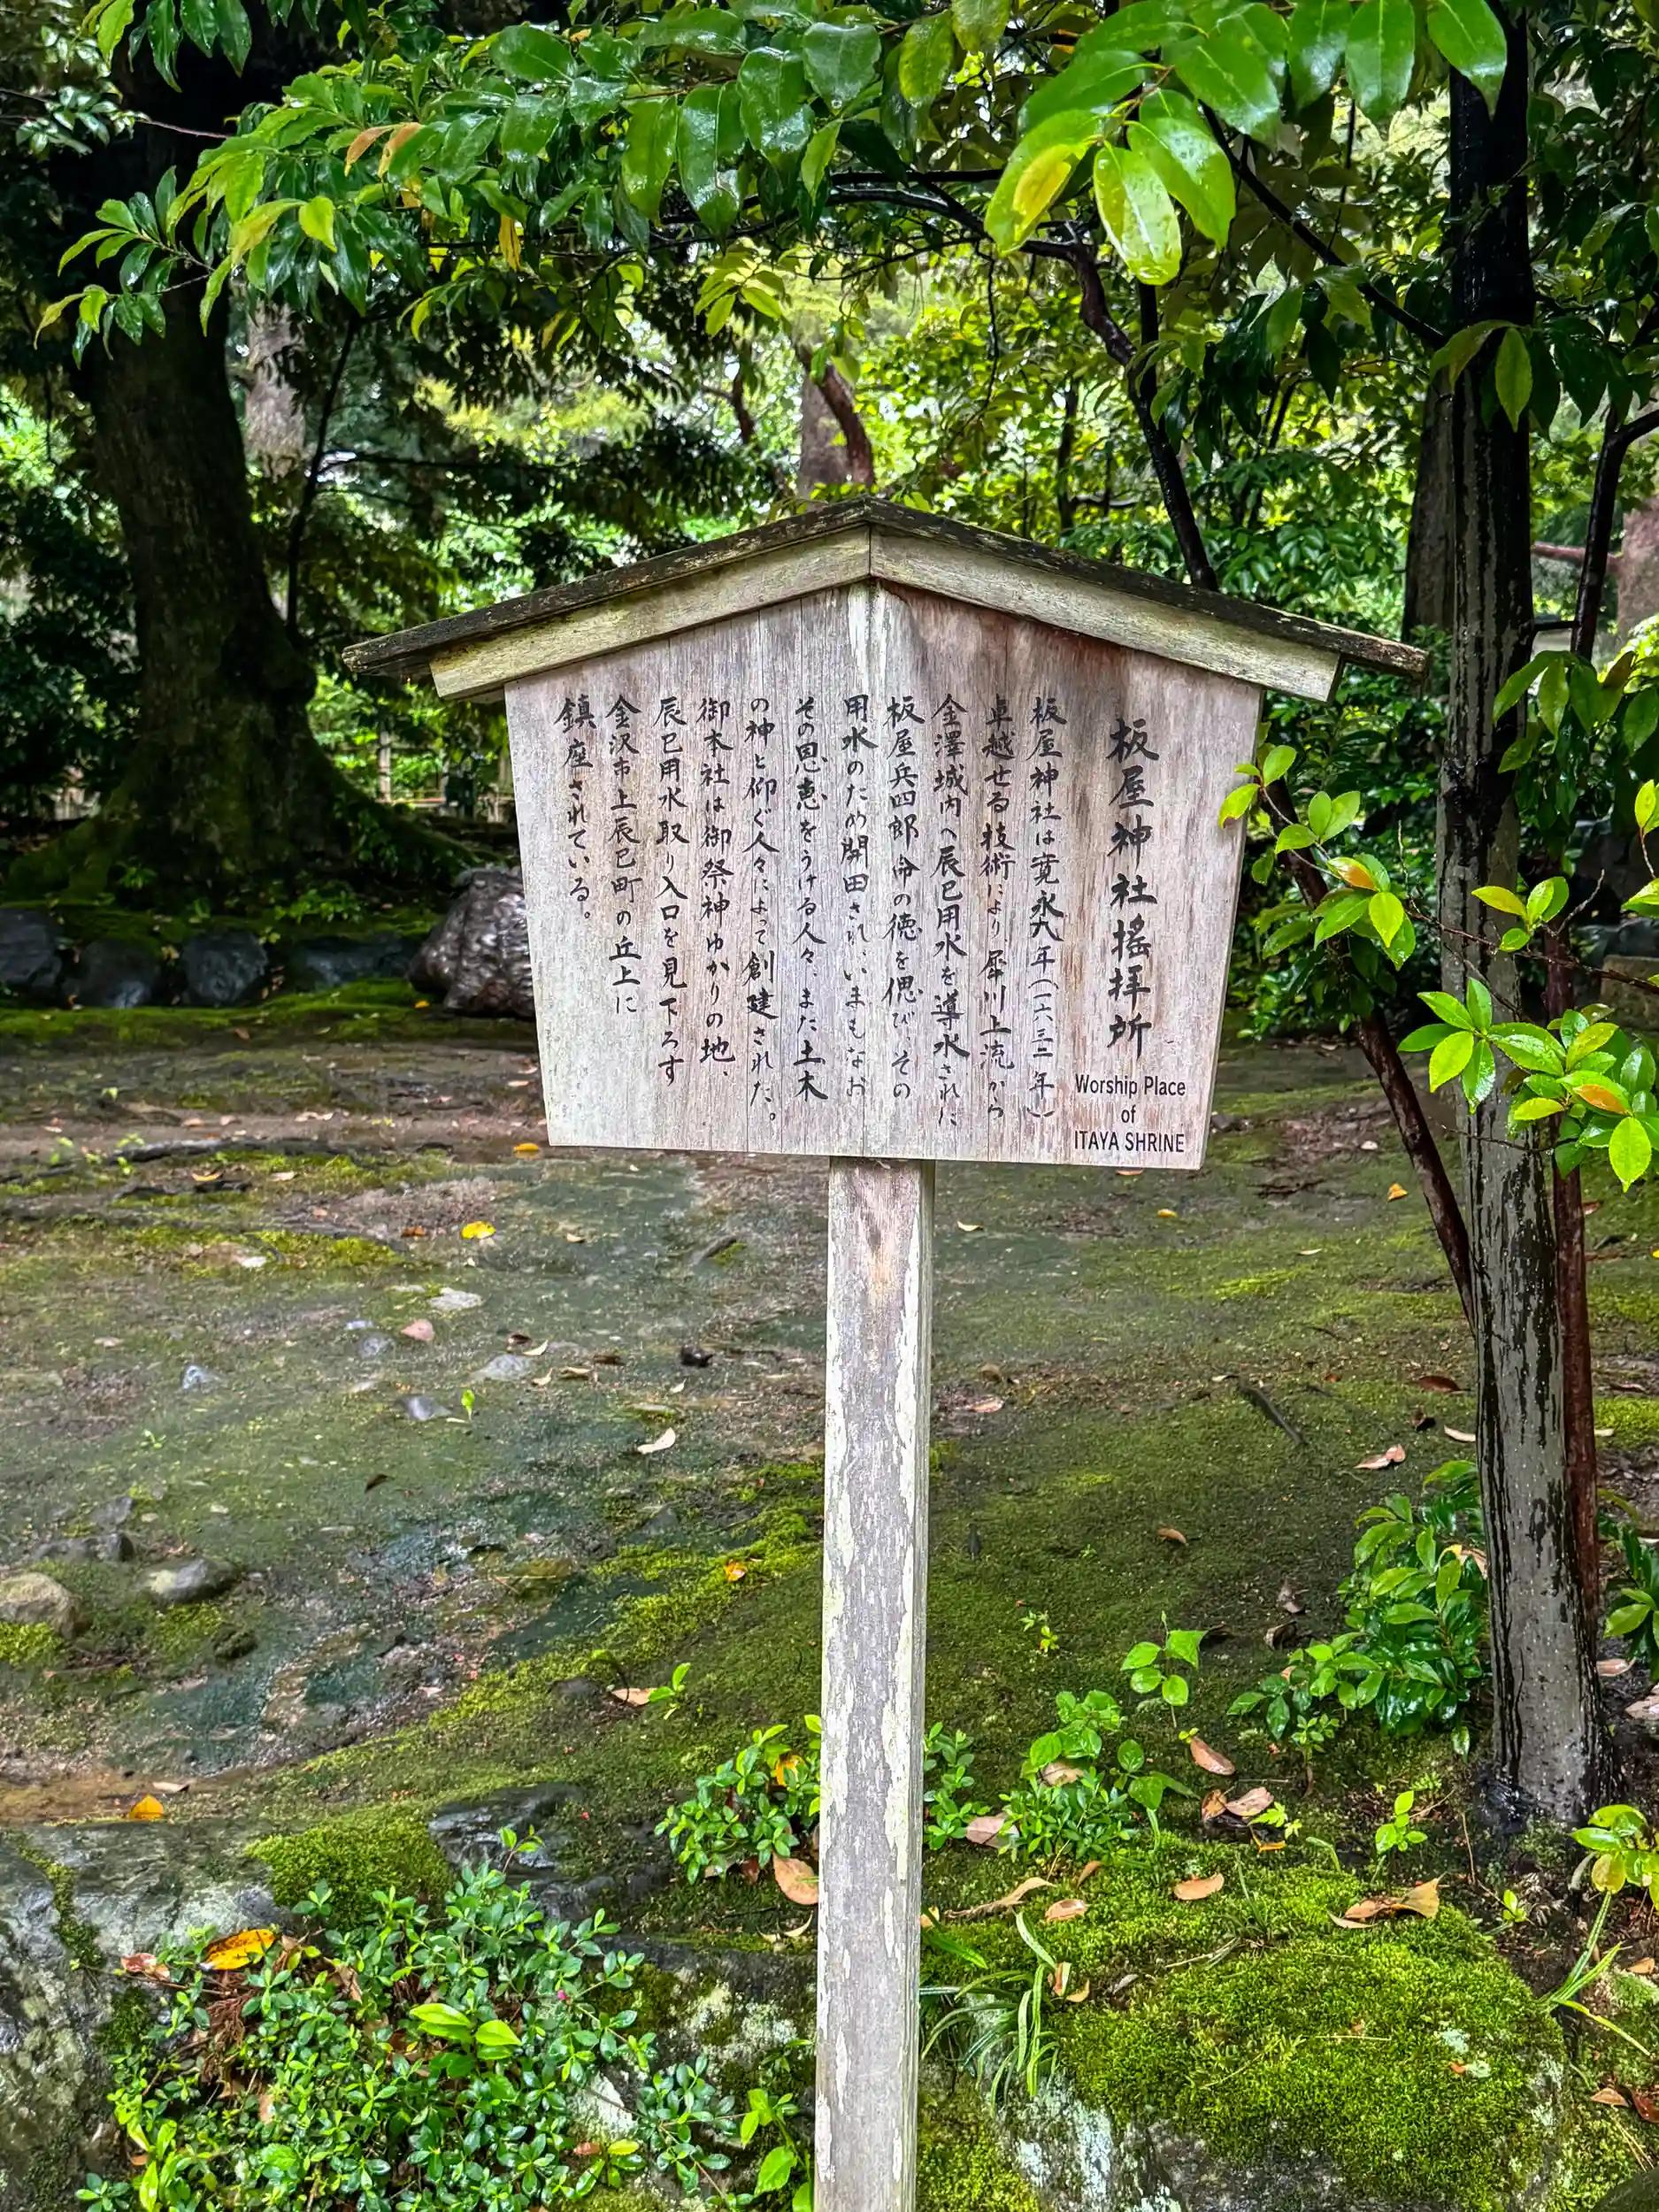 板屋神社搖拝所
Worship Place
of
ITAYA SHRINE
板屋神社は寛永九年(一六三二年)
卓越せる技術により犀川上流から
金澤城内へ辰巳用水を導水された
板屋兵四郎命の徳を偲び、その
用水のため開田され、いまもなお
その恩恵をうける人々、また土木
の神と仰ぐ人々によって創建された。
御本社は御祭神ゆかりの地、
辰巳用水取り入口を見下ろす
金沢市上辰巳町の丘上に
鎮座されている。